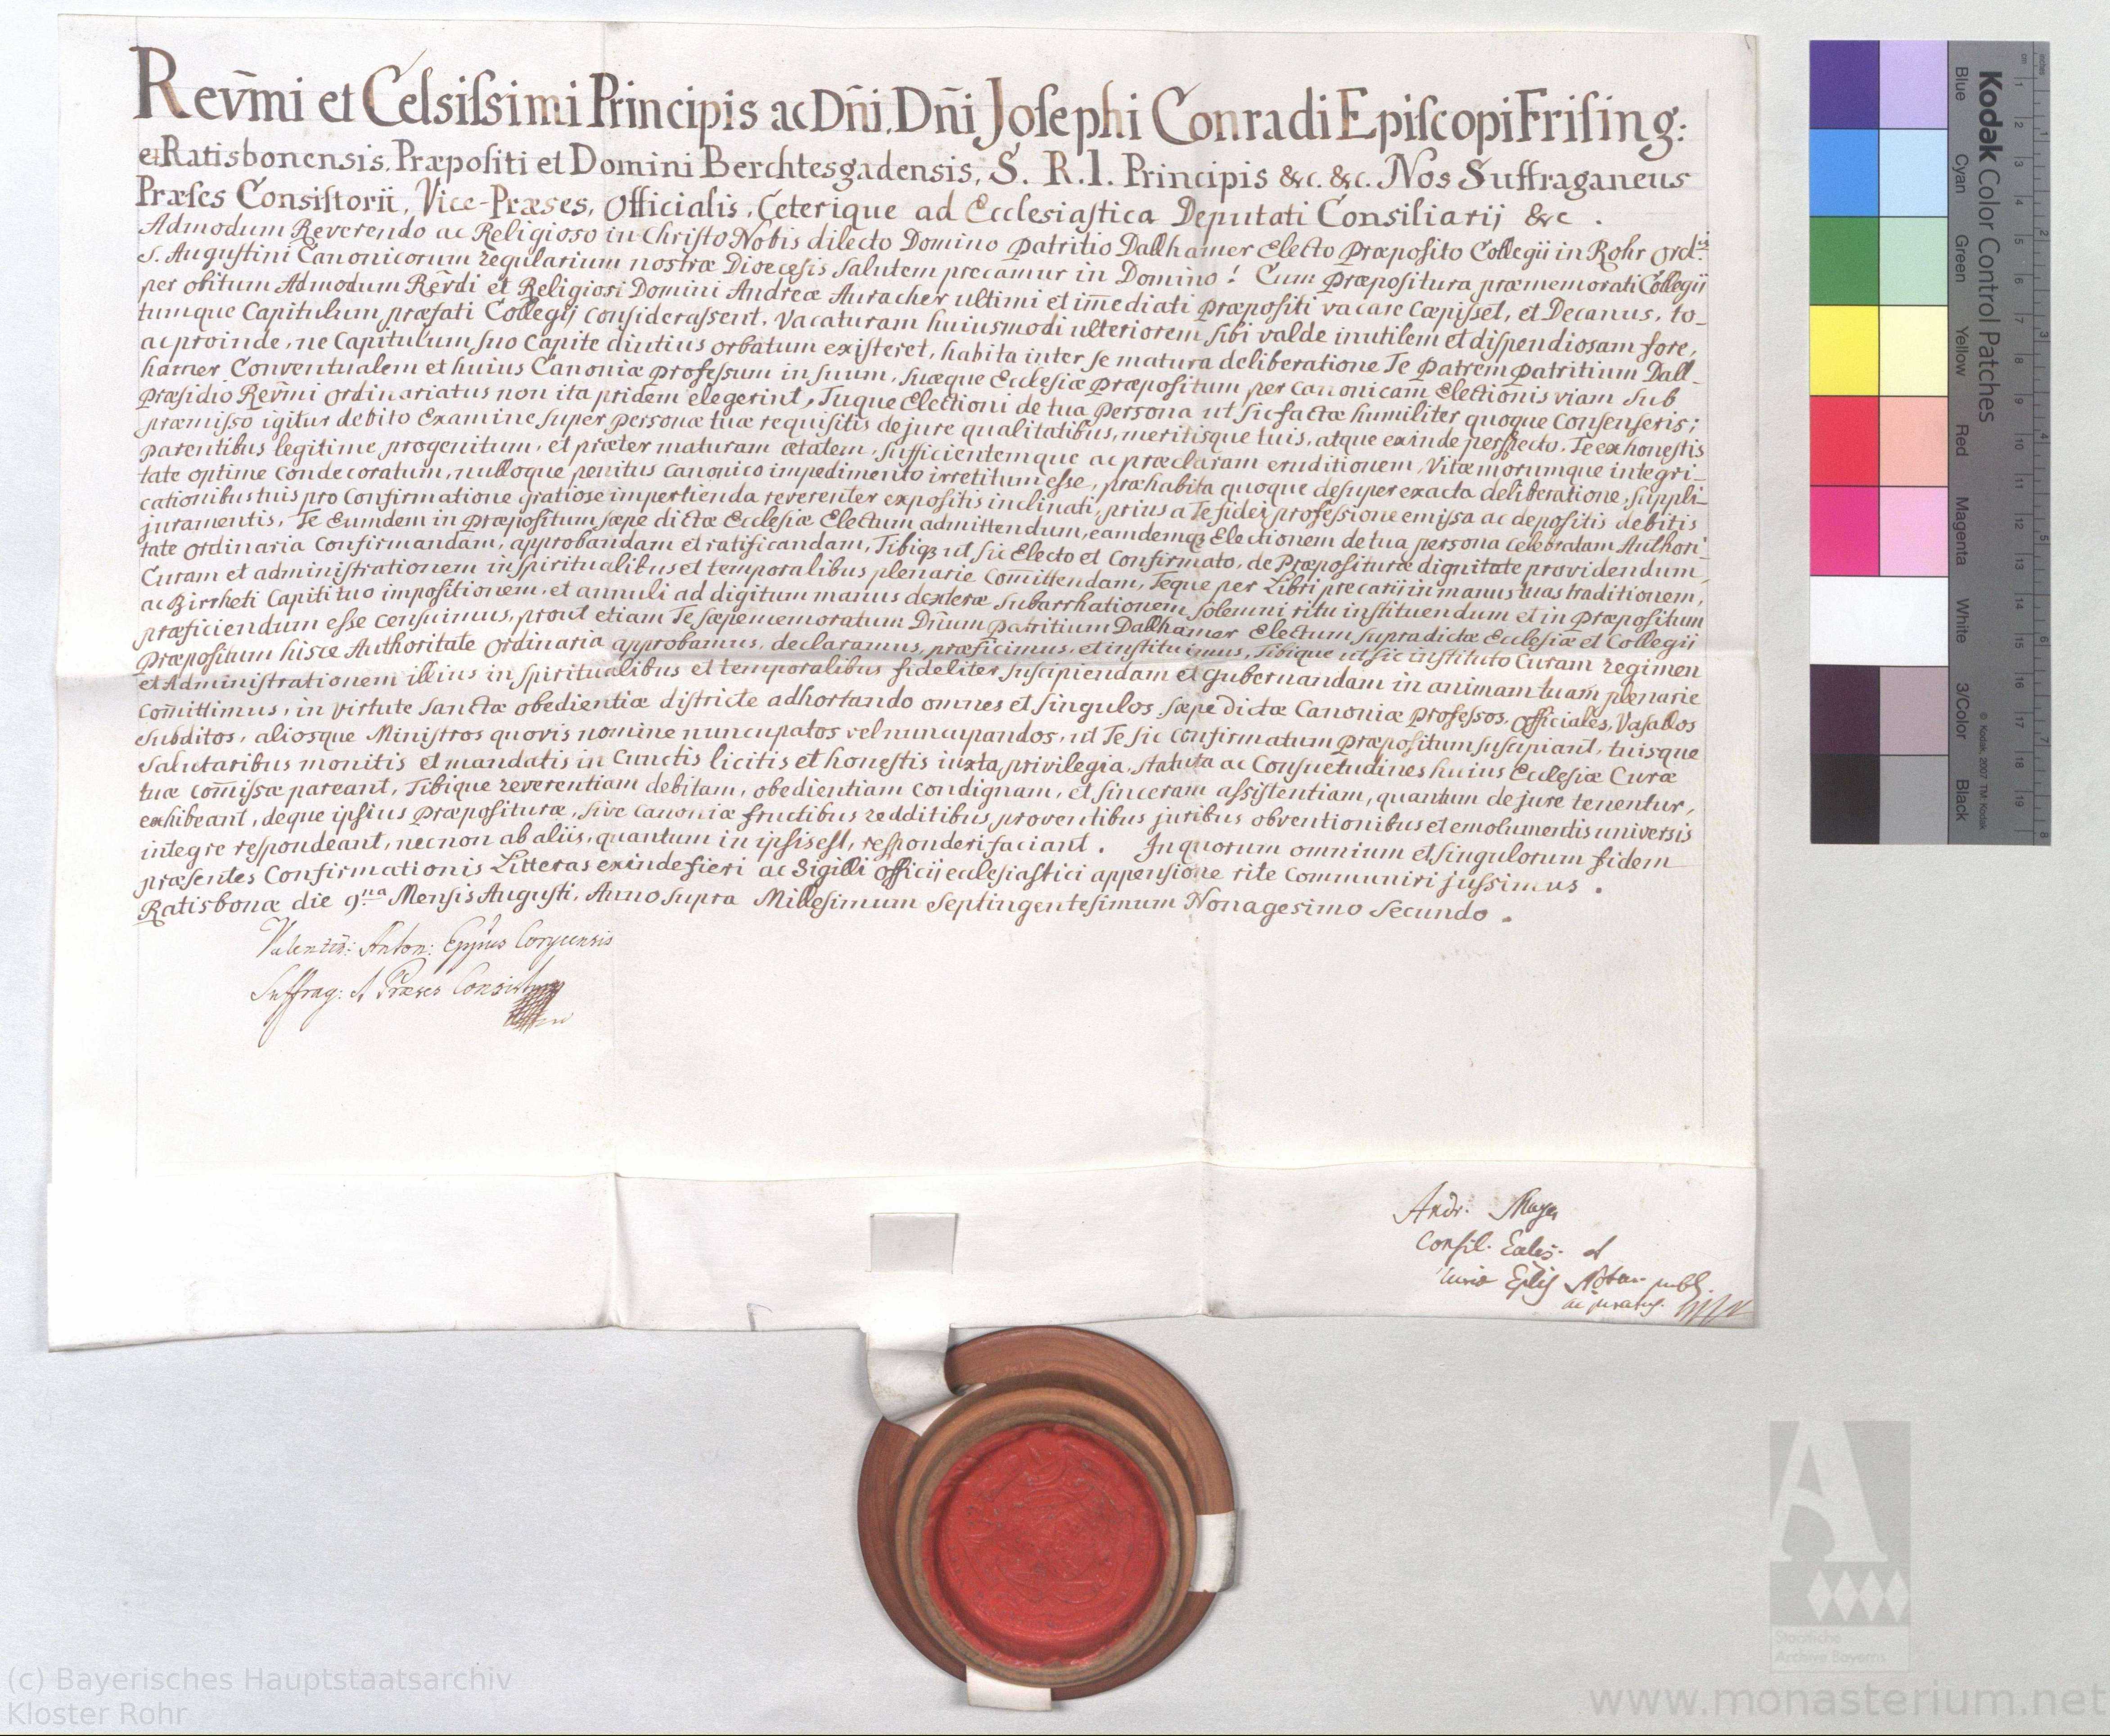 Rev̄mi et Celsiſsimi Principis ac Dñi, Dñi Joſephi Conradi Epiſcopi Friſing:
et Ratisbonensis, Præpoſiti et Domini Berchtesgadensis, S. R. I. Principis &c. &c. Nos Suffraganeus
Præſes Conſiſtorii, Vice-Præses, Officialis, Ceterique ad Eccleſiaſtica Deputati Conſiliarij &c .
Admodum Reverendo ac Religioso in Chriſto Nobis dilecto Domino Patritio Dallhamer Electo Præpoſito Collegii in Rohr Ord:is
S. Auguſtini Canonicorum regularium noſtræ Diœceſis Salutem precamur in Domino! Cum Præpoſitura præmemorati Collegij
per obitum Admodum Rev̄di et Religiosi Domini Andreæ Auracher ultimi et im̄ediati Præpoſiti vacare cæpiſset, et Decanus, to-
tumque Capitulum præfati Collegij conſideraſsent, vacaturam huiusmodi ulteriorem ſibi valde inutilem et diſpendiosam fore,
ac proinde, ne Capitulum ſuo Capite diutius orbatum exiſteret, habita inter ſe matura deliberatione Te Patrem Patritium Dall-
hamer Conventualem et huius Canoniæ Profeſsum in ſuum, ſuæque Eccleſiæ Præpoſitum per canonicam Electionis viam ſub
Præſidio Rev̄mi Ordinariatus non ita pridem elegerint, Tuque Electioni de tua Persona ut ſic factæ humiliter quoque conſenſeris;
præmiſso igitur debito Examine ſuper Personæ tuæ requiſitis de jure qualitatibus, meritisque tuis, atque exinde perſpecto, Te ex honeſtis
parentibus legitime progenitum, et præter maturam ætatem, ſufficientemque ac præclaram eruditionem, vitæ morumque integri-
tate optime condecoratum, nulloque penitus canonico impedimento irretitum eſse, præhabita quoque deſuper exacta deliberatione, ſuppli-
cationibus tuis pro Confirmatione gratiose impertienda reverenter expoſitis inclinati, prius a Te fidei profeſsione emiſsa ac depoſitis debitis
juramentis, Te Eumdem in Præpoſitum ſæpe dictæ Eccleſiæ Electum admittendum, eamdemq̨ Electionem de tua persona celebratam Authori-
tate Ordinaria confirmandam, approbandam et ratificandam, Tibiq̨ ut ſic Electo et Confirmato, de Præpoſituræ dignitate providendum,
Curam et adminiſtrationem in ſpiritualibus et temporalibus plenarie com̄ittendam, Teque per Libri precarii in manus tuas traditionem,
ac Birrheti Capiti tuo impoſitionem, et annuli ad digitum manus dexteræ ſubarrhationem ſolemni ritu inſtituendum et in Præpoſitum
præficiendum eſse cenſuimus, prout etiam Te ſæpememoratum Dnum Patritium Dallhamer Electum ſupradictæ Eccleſiæ et Collegii
Præpoſitum hisce Authoritate Ordinaria approbamus, declaramus, præficimus, et inſtituimus, Tibique ut ſic inſtituto Curam regimen
et Adminiſtrationem illius in ſpiritualibus et temporalibus fideliter ſuſcipiendam et gubernandam in animam tuam plenarie
com̄ittimus, in virtute ſanctæ obedientiæ diſtricte adhortando omnes et ſingulos ſæpe dictæ Canoniæ Profeſsos, Officiales, Vaſallos
ſubditos, aliosque Miniſtros quovis nomine nuncupatos vel nuncupandos, ut Te ſic confirmatum Præpoſitum ſuſcipiant, tuisque
ſalutaribus monitis et mandatis in cunctis licitis et honeſtis iuxta privilegia, ſtatuta ac Conſuetudines huius Eccleſiæ Curæ
tuæ com̄iſsæ pareant, Tibique reverentiam debitam, obedientiam condignam, et ſinceram aſsiſtentiam, quantum de jure tenentur,
exhibeant, deque ipſius Præpoſituræ, ſive Canoniæ fructibus redditibus, proventibus juribus obventionibus et emolumentis universis
integre reſpondeant, necnon ab aliis, quantum in ipſis eſt, reſponderi faciant . In quorum omnium et ſingulorum fidem
præſentes Confirmationis Litteras exinde fieri ac Sigilli Officij eccleſiaſtici appenſione rite communiri juſsimus .
Ratisbonæ die 9.na Mensis Auguſti, Anno ſupra Milleſimum Septingenteſimum Nonagesimo ſecundo .
Valentin: Anton: Eppus Corycensis
Suffrag: et Præses Consist
Andr: Mayer
Conſil. Eccles. et
Curiæ Eplis Notar. publ.
ac juratus.
Kodak Color Control Patches
Blue Cyan Green Yellow Red Magenta White 3/Color Black
© Kodak, 2007 TM: Kodak
Staatliche
Archive Bayerns
(c) Bayerisches Hauptstaatsarchiv
Kloster Rohr
www.monasterium.net